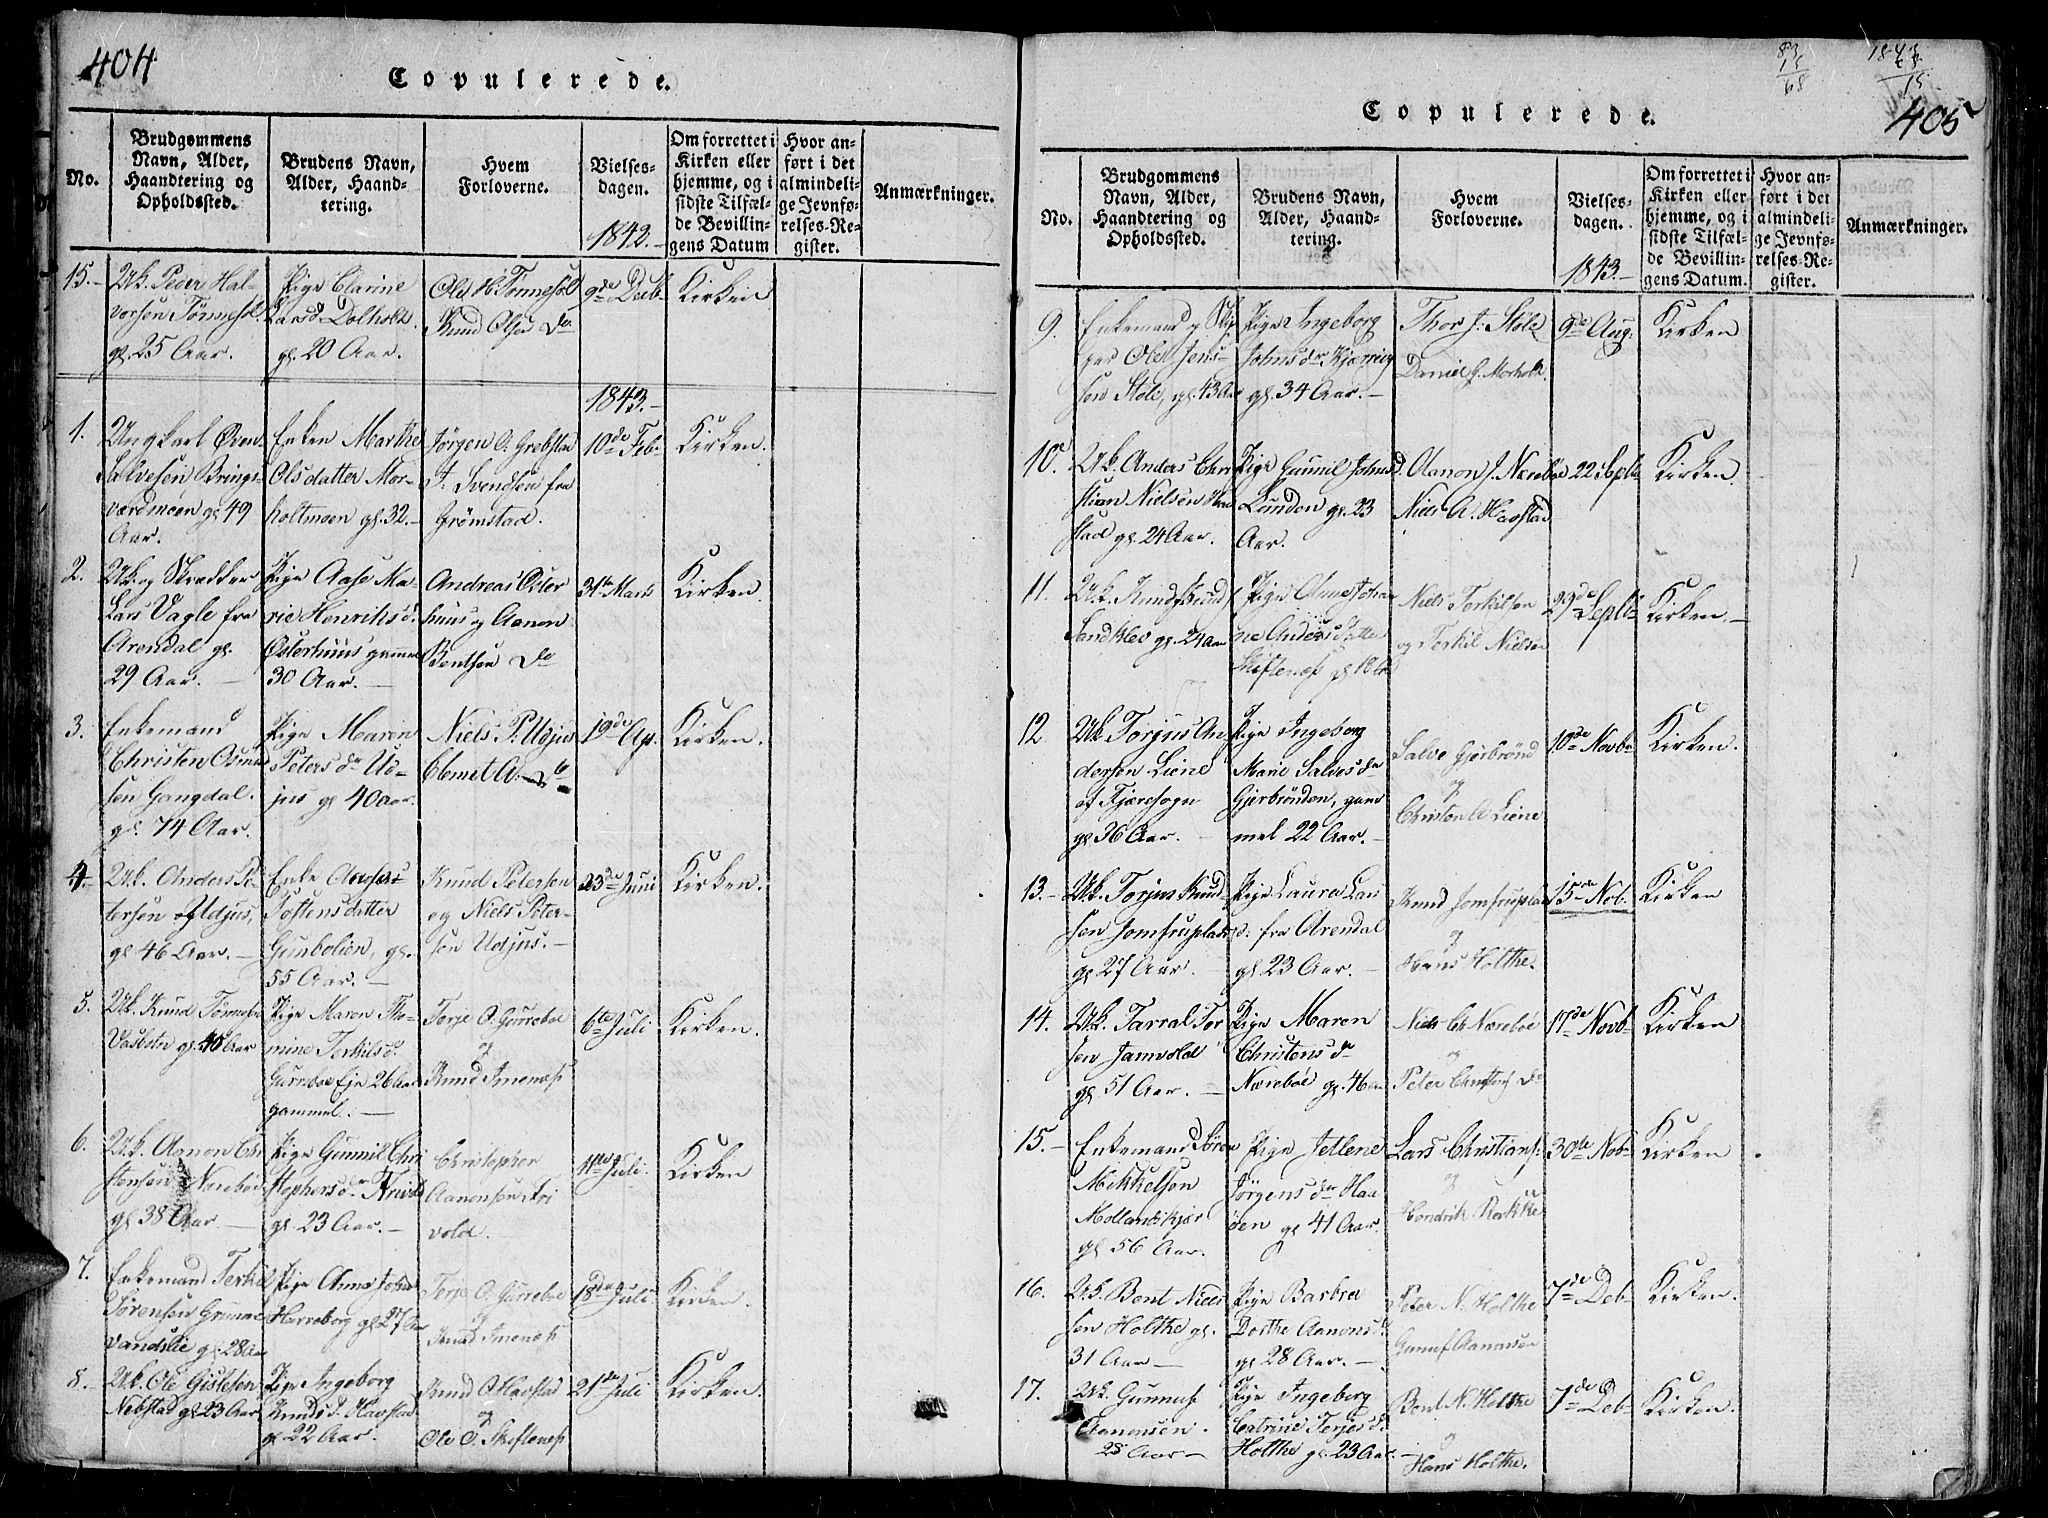 404
Copulerede.
No.
Brudgommens
Navn, Alder,
Haandtering og
Opholdssted.
Brudens Navn,
Alder, Haand-
tering.
Hvem
Forloverne.
Vielses-
dagen.
1842.-
Om forrettet i
Kirken eller
hjemme, og i
sidste Tilfæl-
de Bevillin-
gens Datum
Hvor an-
ført i det
almindeli-
ge Jevnfø-
relses-Re-
gister.
Anmærkninger.
15.-
Uk. Peder Hal-
vorsen Tønnesøl
gl. 25 Aar.
Pige Clarine
Larsd. Dolholt.
gl. 20 Aar.
Ole H. Tønnesøl
Knud Olsen Do.
9de Decb
Kirken
1843.-
1.
Ungkarl Øven
Salvesen Brings-
værdmoen gl 49
Aar.
Enken Marthe
Olsdatter Mor-
holtmoen gl. 32.-
Jørgen O. Grebstad
T. Svendsen fra
Grømstad.
10de Feb.
Kirken.
2.
Uk. og Skrædder
Lars Vagle fra
Arendal gl.
29 Aar.
Pige Aase Ma-
rie Henriksd.
Østerhuus gamme
30 Aar.
Andreas Øster
huus og Aanon
Bentsen Do
31te Marts
Kirken.
3.
Enkemand
Christen Osmund
sen Gangdal.
gl. 74 Aar.
Pige Maren
Peters dr Ud-
jus gl 40 aar.
Niels P. Udjus
Clemet A. Do
19de Ap.
Kirken.
4.-
Uk. Anders Pe-
tersen Udjus,
gl 46 Aar.-
Enke
Tostensdatter
Gunbolien, gl.
55 Aar.-
Knud Petersen
og Niels Peter-
sen Udjus.-
23de Juni
Kirken.
5.
Uk. Knud Tønnesen
Vasbotn gl. 40 Aar
Pige Maren Tho-
mine Terkilsd.
Gurreboe Eje 26 Aar
gammel.-
Terje O. Gurreboe
og
Knud Imenæs
6te Juli
Kirken.
6.
Uk. Aanon Chri
stensen Nereboe
gl. 38 Aar
Pige Gunnil Chri
stophersdr Trivold
gl. 23 Aar.-
Christopher
Aanonsen Tri
vold.
11te Juli.
Kirken
7.
Enkemand Terkel
Sørensen Grumme
vandslie gl. 28 Aar
Pige Anne Johns
Harreborg gl 27 Aar
Terje O. Gurreboe
og
Knud Imenæs
18de Juli
Kirken.
8.
Uk. Ole Gislesen
Nebstad gl. 23 Aar
Pige Ingeborg
Knudsd. Havstad
gl 22 Aar.
Knud O. Havstad
og
Ole O. Skiftenæs
21de Juli
Kirken.
83
15
68
1843
28
15
405
Copulerede.
No.
Brudgommens
Navn, Alder,
Haandtering og
Opholdssted.
Brudens Navn,
Alder, Haand-
tering.
Hvem
Forloverne.
Vielses-
dagen.
1843.-
Om forrettet i
Kirken eller
hjemme, og i
sidste Tilfæl-
de Bevillin-
gens Datum.
Hvor an-
ført i det
almindeli-
ge Jevnfø-
relses-Re-
gister.
Anmærkninger.
9.
Enkemand og
Ole Jens-
sen Støle, gl. 43 Aar
Pige Ingeborg
Johnsdr
gl. 34 Aar.-
Thor J. Støle
Daniel J. Morholt.
9de Aug.
Kirken
10.
Uk. Anders Chri
stian Nielsen Hav
stad gl. 24 Aar.
Pige Gunnil Johnsd.
Lunden gl. 23
Aar.
Aanon J. Nereboe
Niels A. Havstad
22 Septb
Kirken.
11.
Uk. Knud Knuds
Sandklev gl. 24 aar
Pige Anne Johan
ne Anders datter
Skiftenæs gl 18 Aar
Niels Terkilsen
og Terkil Nielsen
29de Septb
Kirken.-
12
Uk. Torjus An
dersen Liene
af Fjæresogn
gl 36 Aar.-
Pige Ingeborg
Marie Salvesdr
Gjerbrønden, gam
mel 22 Aar.-
Salve Gjerbrønd
og
Christen A Liene
10de Novb
Kirken.
13.-
Uk. Torjus Knud-
sen Jomfruplads
gl 27 Aar.
Pige Laurea Lar
d. fra Arendal
gl. 23 Aar.-
Knud Jomfruplads
og
Hans Holthe.
15de Nob.
Kirken
14.
Uk. Tarral Tor
sen Jamvold
gl. 51 Aar.-
Pige Maren
Christensdr
Nærebøe gl. 46 aar
Niels Ch Nærebøe
og
Peter Christens Do
17de Novb
Kirken
15.-
Enkemand Søren
Mikkelsen
Mollandskjær
gl 56 Aar.
Pige Jellene
Jørgensdr Haa
øen gl 41 Aar.
Lars Christians.
og
Hendrik Rokke
30te Nob
Kirken
16.
Uk. Bent Niels
sen Holthe gl.
31 Aar-
Pige Barbra
Dorthe Aanonsd.
gl. 28 Aar.-
Peter N. Holthe
Gunuf Aanonsen
7de Deb
Kirken.
17.
Uk. Gunnuf
Aanonsen.
28 Aar-
Pige Ingeborg
Catrine Terjesd.
Holthe gl. 23 Aar.-
Bent N. Holthe
og
Hans Holthe.
7de Deb
Kirken.